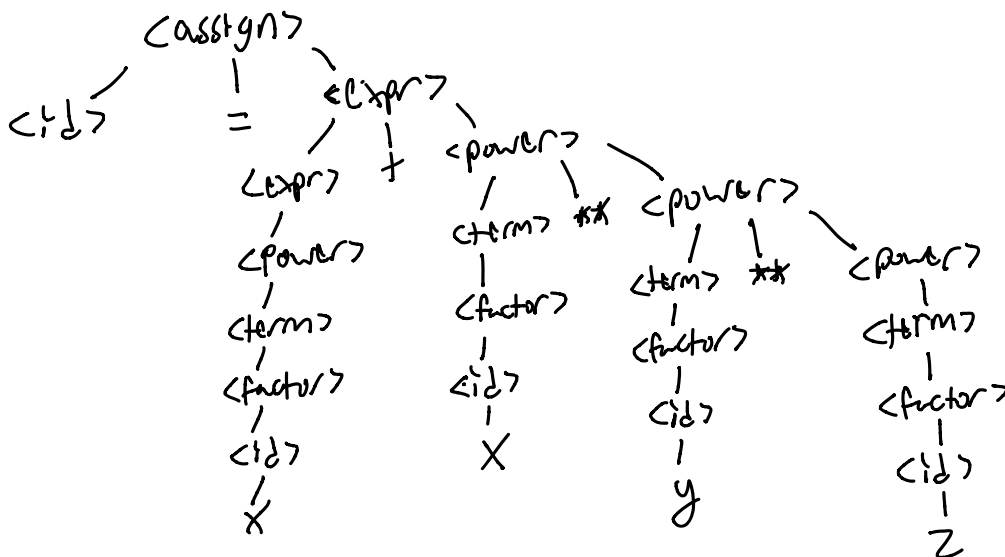 <assign>
<id> = <expr>
<expr> + <power>
<power> <term> ** <power>
<term> <factor> <term> ** <power>
<factor> <id> <factor> <term>
<id> X <id> <factor>
X y <id>
Z